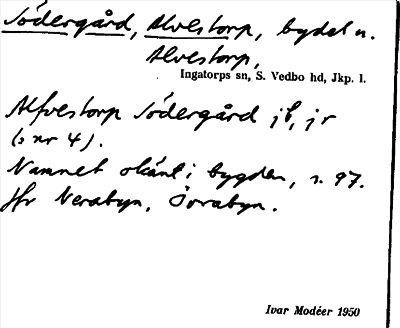 Södergård, Alvestorp, bydel u.
Alvestorp,
Ingatorps sn, S. Vedbo hd, Jkp. l.
Alfvestorp Södergård jb, jr
(: nr 4).
Namnet okänt i bygden, s. 97.
Jfr Nerabyn, Övrabyn.
Ivar Modéer 1950